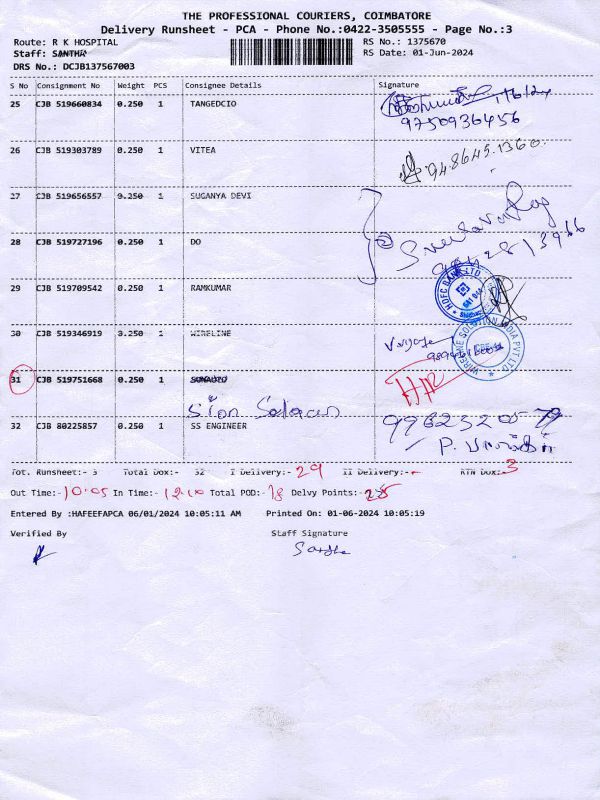 THE PROFESSIONAL COURIERS, COIMBATORE
Delivery Runsheet - PCA - Phone No.:0422-3505555 - Page No.:3
Route: R K HOSPITAL
RS No.: 1375670
Staff: SANTHR
RS Date: 01-Jun-2024
DRS No.: DCJB137567003
S No Consignment No Weight PCS Consignee Details Signature
25 CJB 519660834 0.250 1 TANGEDCIO
9750936456
26 CJB 519303789 0.250 1 VITEA
9486451360
27 CJB 519656557 0.250 1 SUGANYA DEVI
28 CJB 519727196 0.250 1 DO
HDFC BANK LTD
29 CJB 519709542 0.250 1 RAMKUMAR
30 CJB 519346919 0.250 1 WIRELINE
31 CJB 519751668 0.250 1
32 CJB 80225857 0.250 1 SS ENGINEER
Tot. Runsheet:- 3 Total Dox:- 32 I Delivery:- 29 II Delivery:- RTN Dox:- 3
Out Time:- 10:05 In Time:- Total POD:- 18 Delvy Points:- 25
Entered By :HAFEEFAPCA 06/01/2024 10:05:11 AM Printed On: 01-06-2024 10:05:19
Verified By Staff Signature